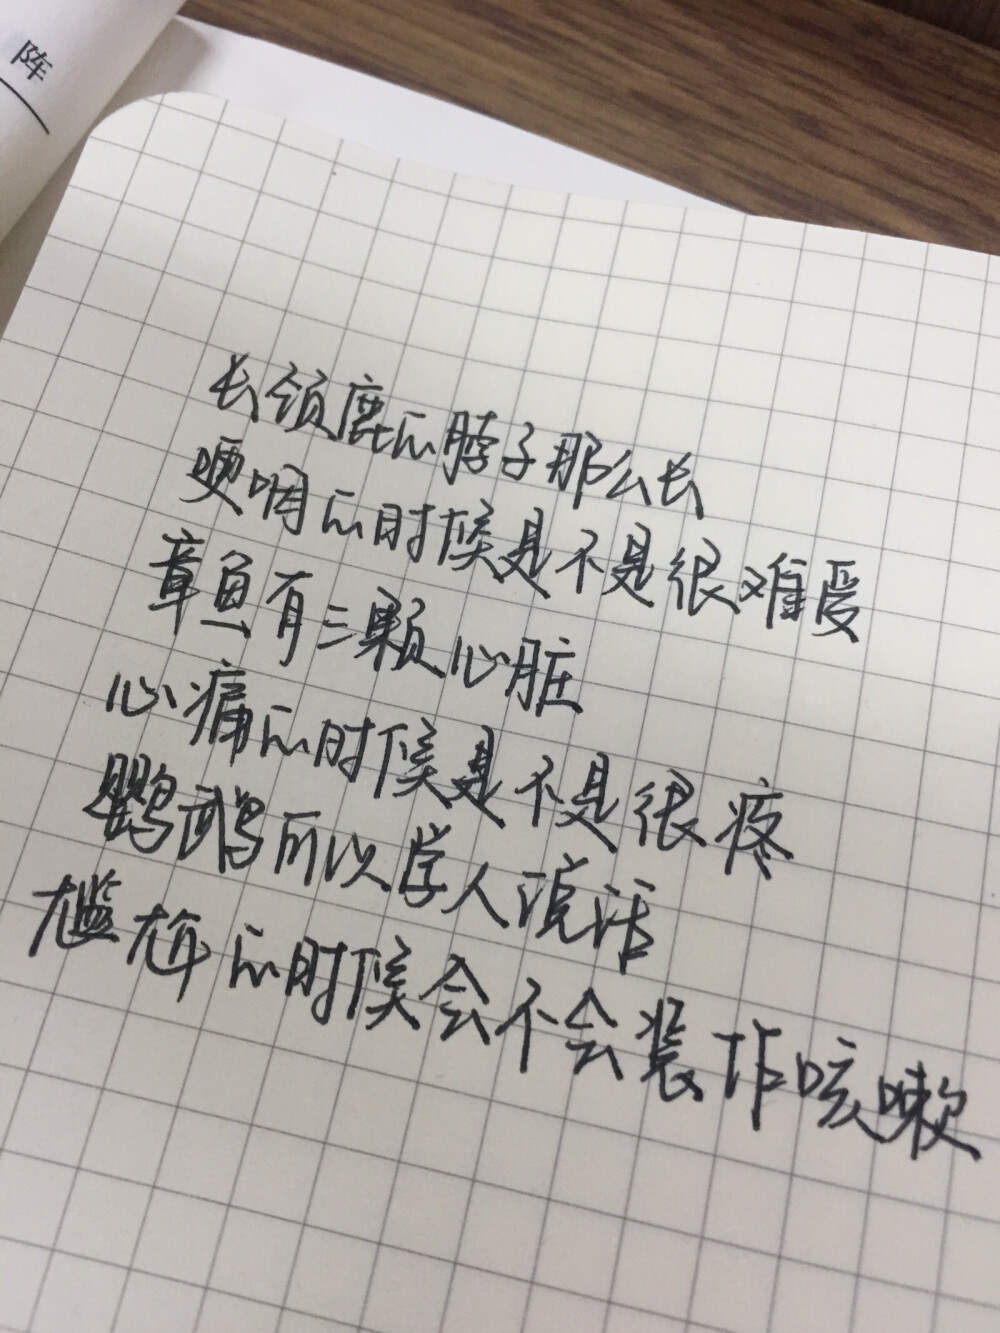 阵
长颈鹿的脖子那么长
哽咽的时候是不是很难受
章鱼有三颗心脏
心痛的时候是不是很疼
鹦鹉可以学人说话
尴尬的时候会不会装作咳嗽